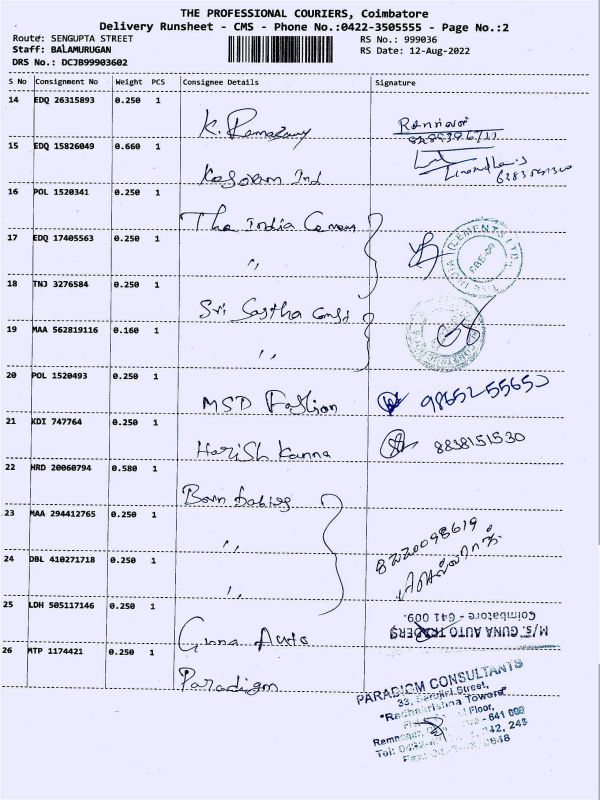 THE PROFESSIONAL COURIERS, Coimbatore
Delivery Runsheet - CMS - Phone No.:0422-3505555 - Page No.:2
Route: SENGUPTA STREET
RS No.: 999036
Staff: BALAMURUGAN
RS Date: 12-Aug-2022
DRS No.: DCJB99903602
S No Consignment No Weight PCS Consignee Details Signature
14 EDQ 26315893 0.250 1 K. Ramasamy
15 EDQ 15826049 0.660 1 Ind
16 POL 1520341 0.250 1 The India Cements
17 EDQ 17405563 0.250 1 "
18 TNJ 3276584 0.250 1 Sri Sastha Const
19 MAA 562819116 0.160 1 "
20 POL 1520493 0.250 1 MSD Fashion
21 KDI 747764 0.250 1 Harish Kanna 8838151530
22 HRD 20060794 0.580 1 Born babies
23 MAA 294412765 0.250 1 "
8220098619
24 DBL 410271718 0.250 1 "
25 LDH 505117146 0.250 1 Guna Auto
M/s. GUNA AUTO TRADERS
Coimbatore - 641 009.
26 MTP 1174421 0.250 1 Paradigm
PARADIGM CONSULTANTS
Street,
"Radhakrishna Towers"
Floor,
- 641 009